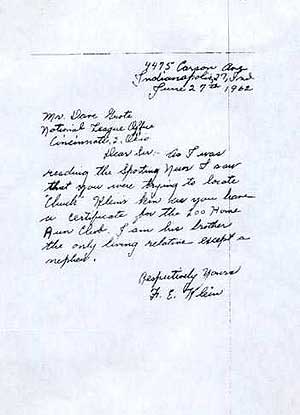 4475 Carson Ave
Indianapolis, 27, Ind.
June 27th 1962
Mr. Dave Grote
National League Office
Cincinnati, 2, Ohio
Dear Sir - As I was
reading the Sporting News I saw
that you were trying to locate
Chuck Kleins kin as you have
a certificate for the 200 Home
Run Club. I am his brother
the only living relative except a
nephew.
Respectively Yours
F. E. Klein